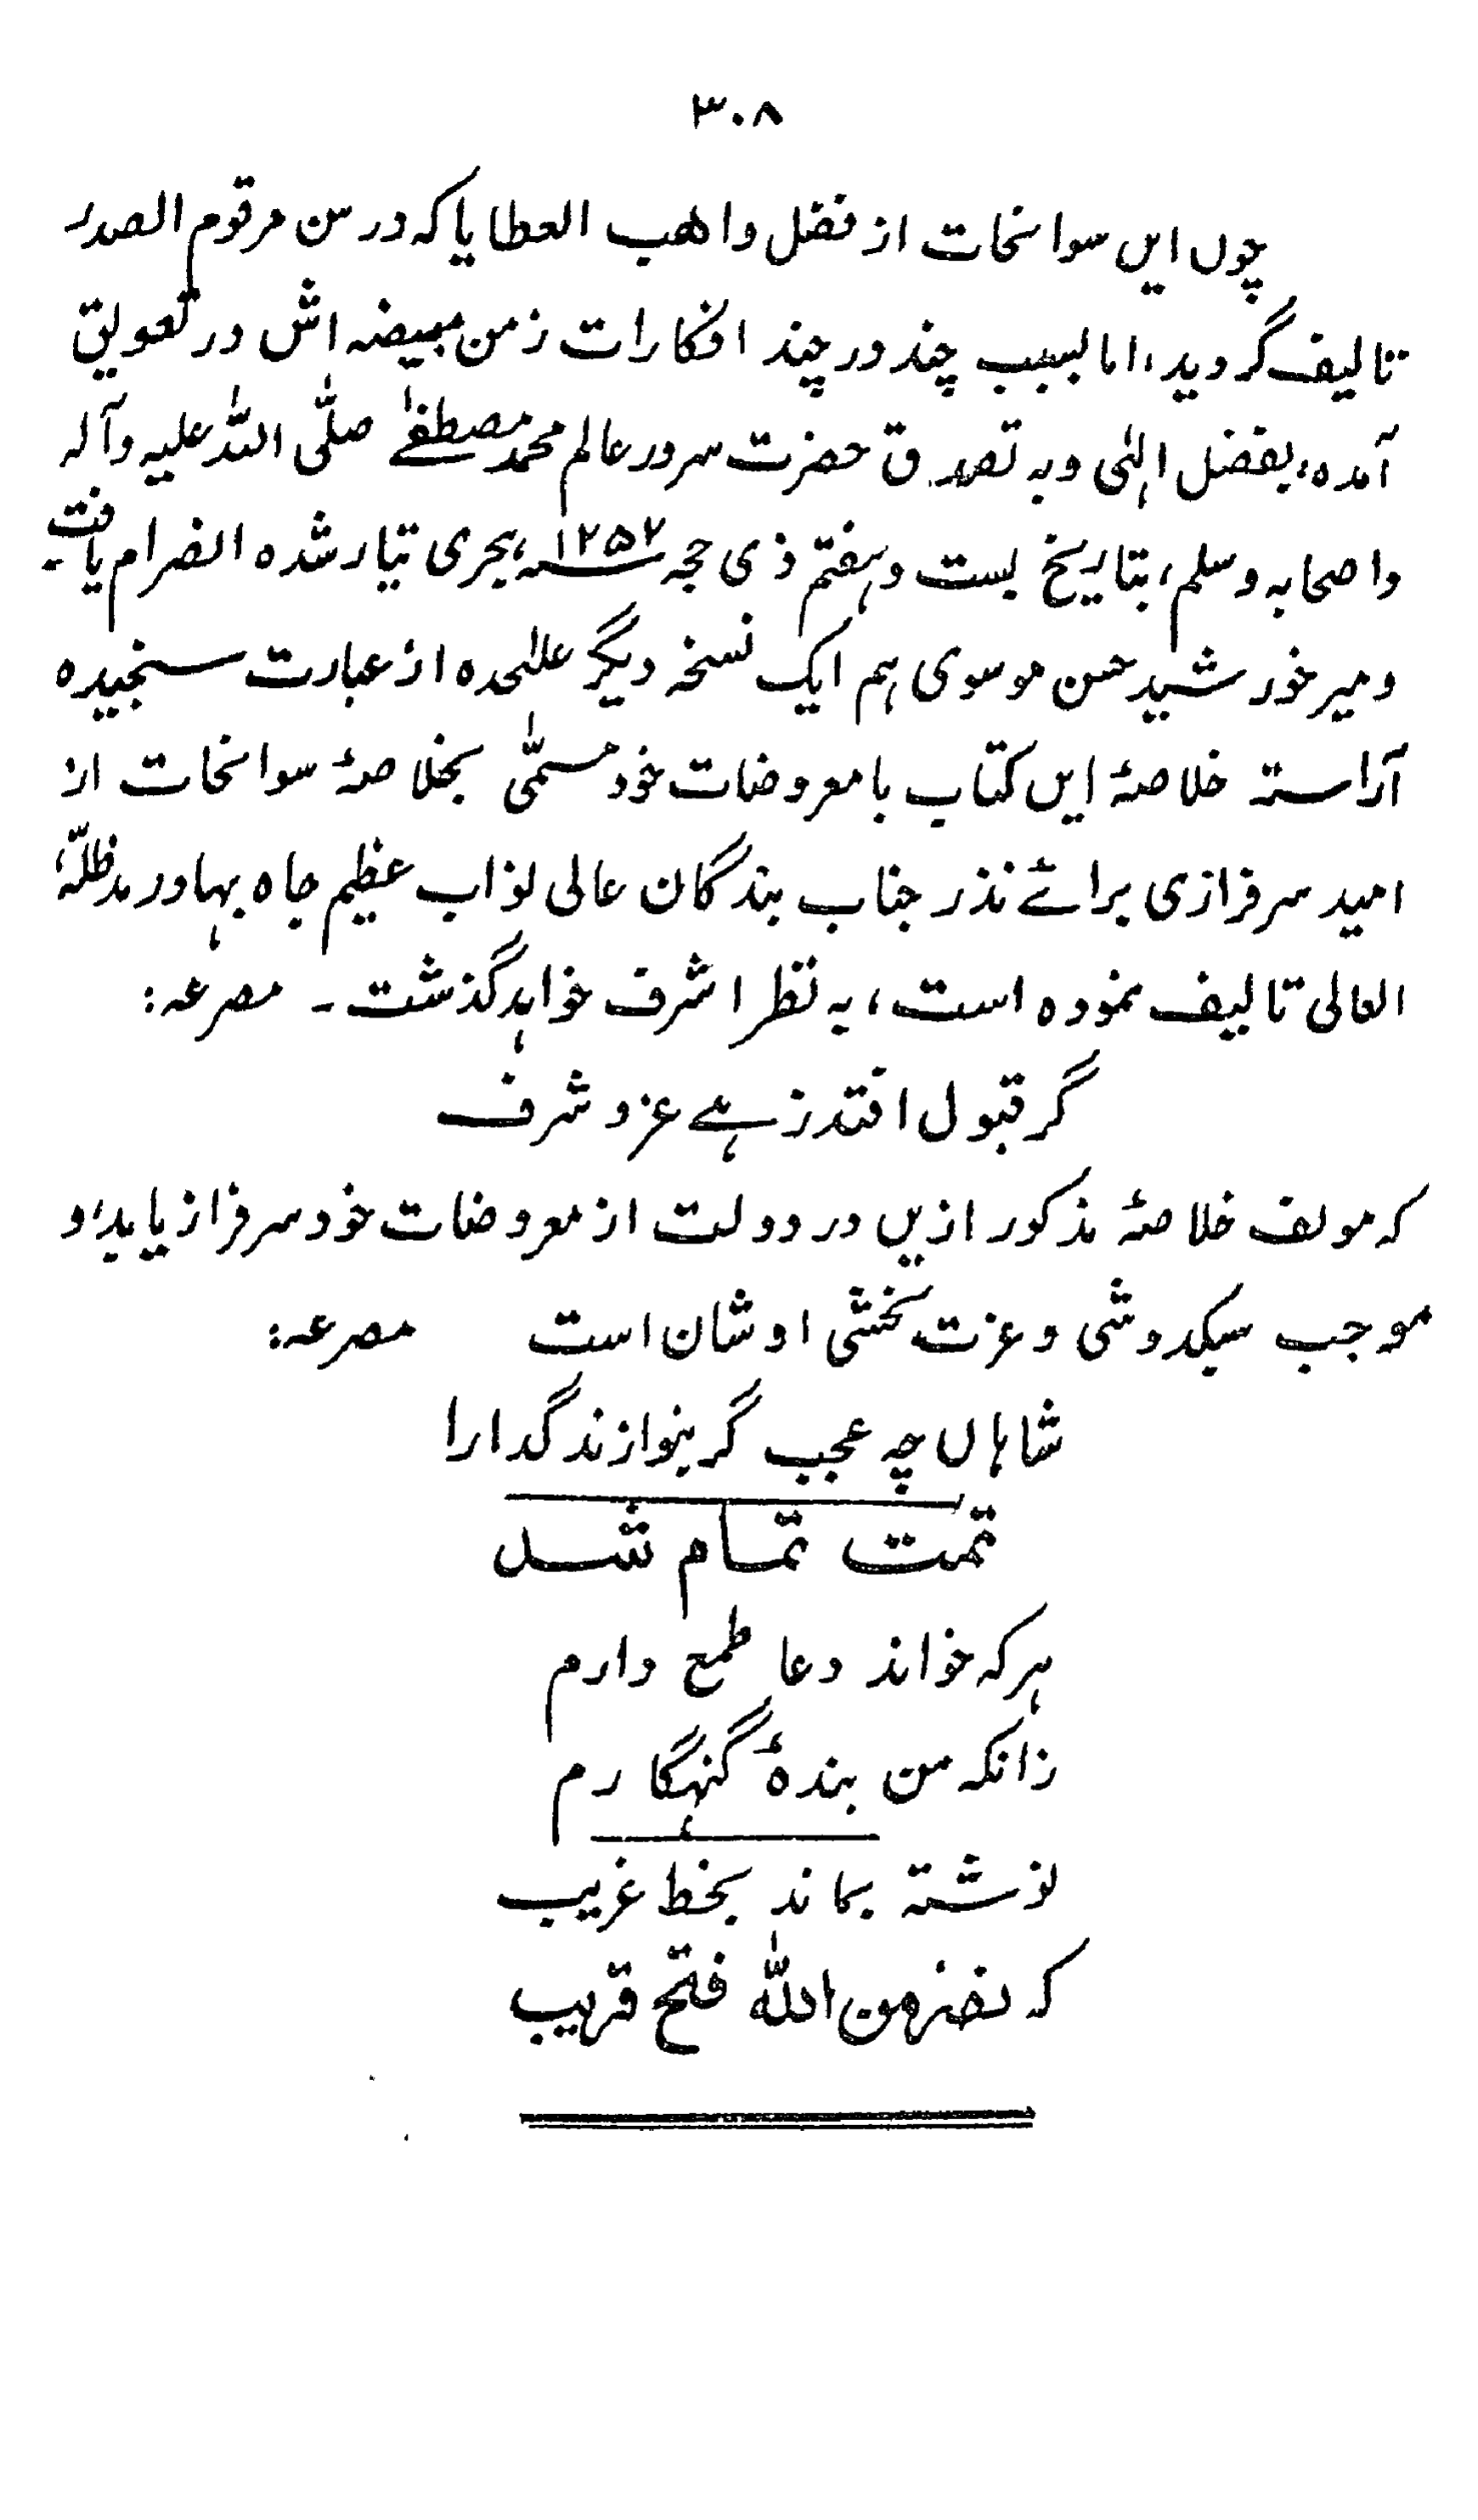 ۳۰۸
چوں ایں سوانحات از فضل واھب العطایا کہ در سن مرقوم الصدر
تالیف گردید، اما بسبب چند در چند افکارات زمن مبیضہ اش در تعویق
آمدہ، بفضل الہٰی و بہ تصدق حضرت سرور عالم محمد مصطفےٰ صلّی اللہ علیہ وآلہ
واصحابہ وسلم، بتاریخ بست وہفتم ذی حجہ ۱۲۵۲؁ ہجری تیار شدہ انصرام یافت۔
و میر خورشید حسن موسوی ہم ایک نسخہ دیگر علٰحدہ از عبارت سنجیدہ
آراستہ خلاصۂ ایں کتاب با معروضات خود مسمّٰی بخلاصۂ سوانحات از
امید سرفرازی برائے نذر جناب بندگان عالی نواب عظیم جاہ بہادر مدظلہٗ
العالی تالیف نمودہ است، بہ نظر اشرف خواہد گذشت ۔ مصرعہ:
گر قبول افتد زہے عز و شرف
کہ مولف خلاصۂ مذکور ازیں در دولت از معروضات خود سرفراز یابد، او
موجب سبکدوشی و عزت بخشی اوشان است مصرعہ:
شاہاں چہ عجب گر بنوازند گدا را
تمّت تمام شد
ہر کہ خواند دعا طمع دارم
زانکہ من بندۂ گنہگارم
نوشتہ بماند بخط غریب
کہ نصر من اللہ فتح قریب